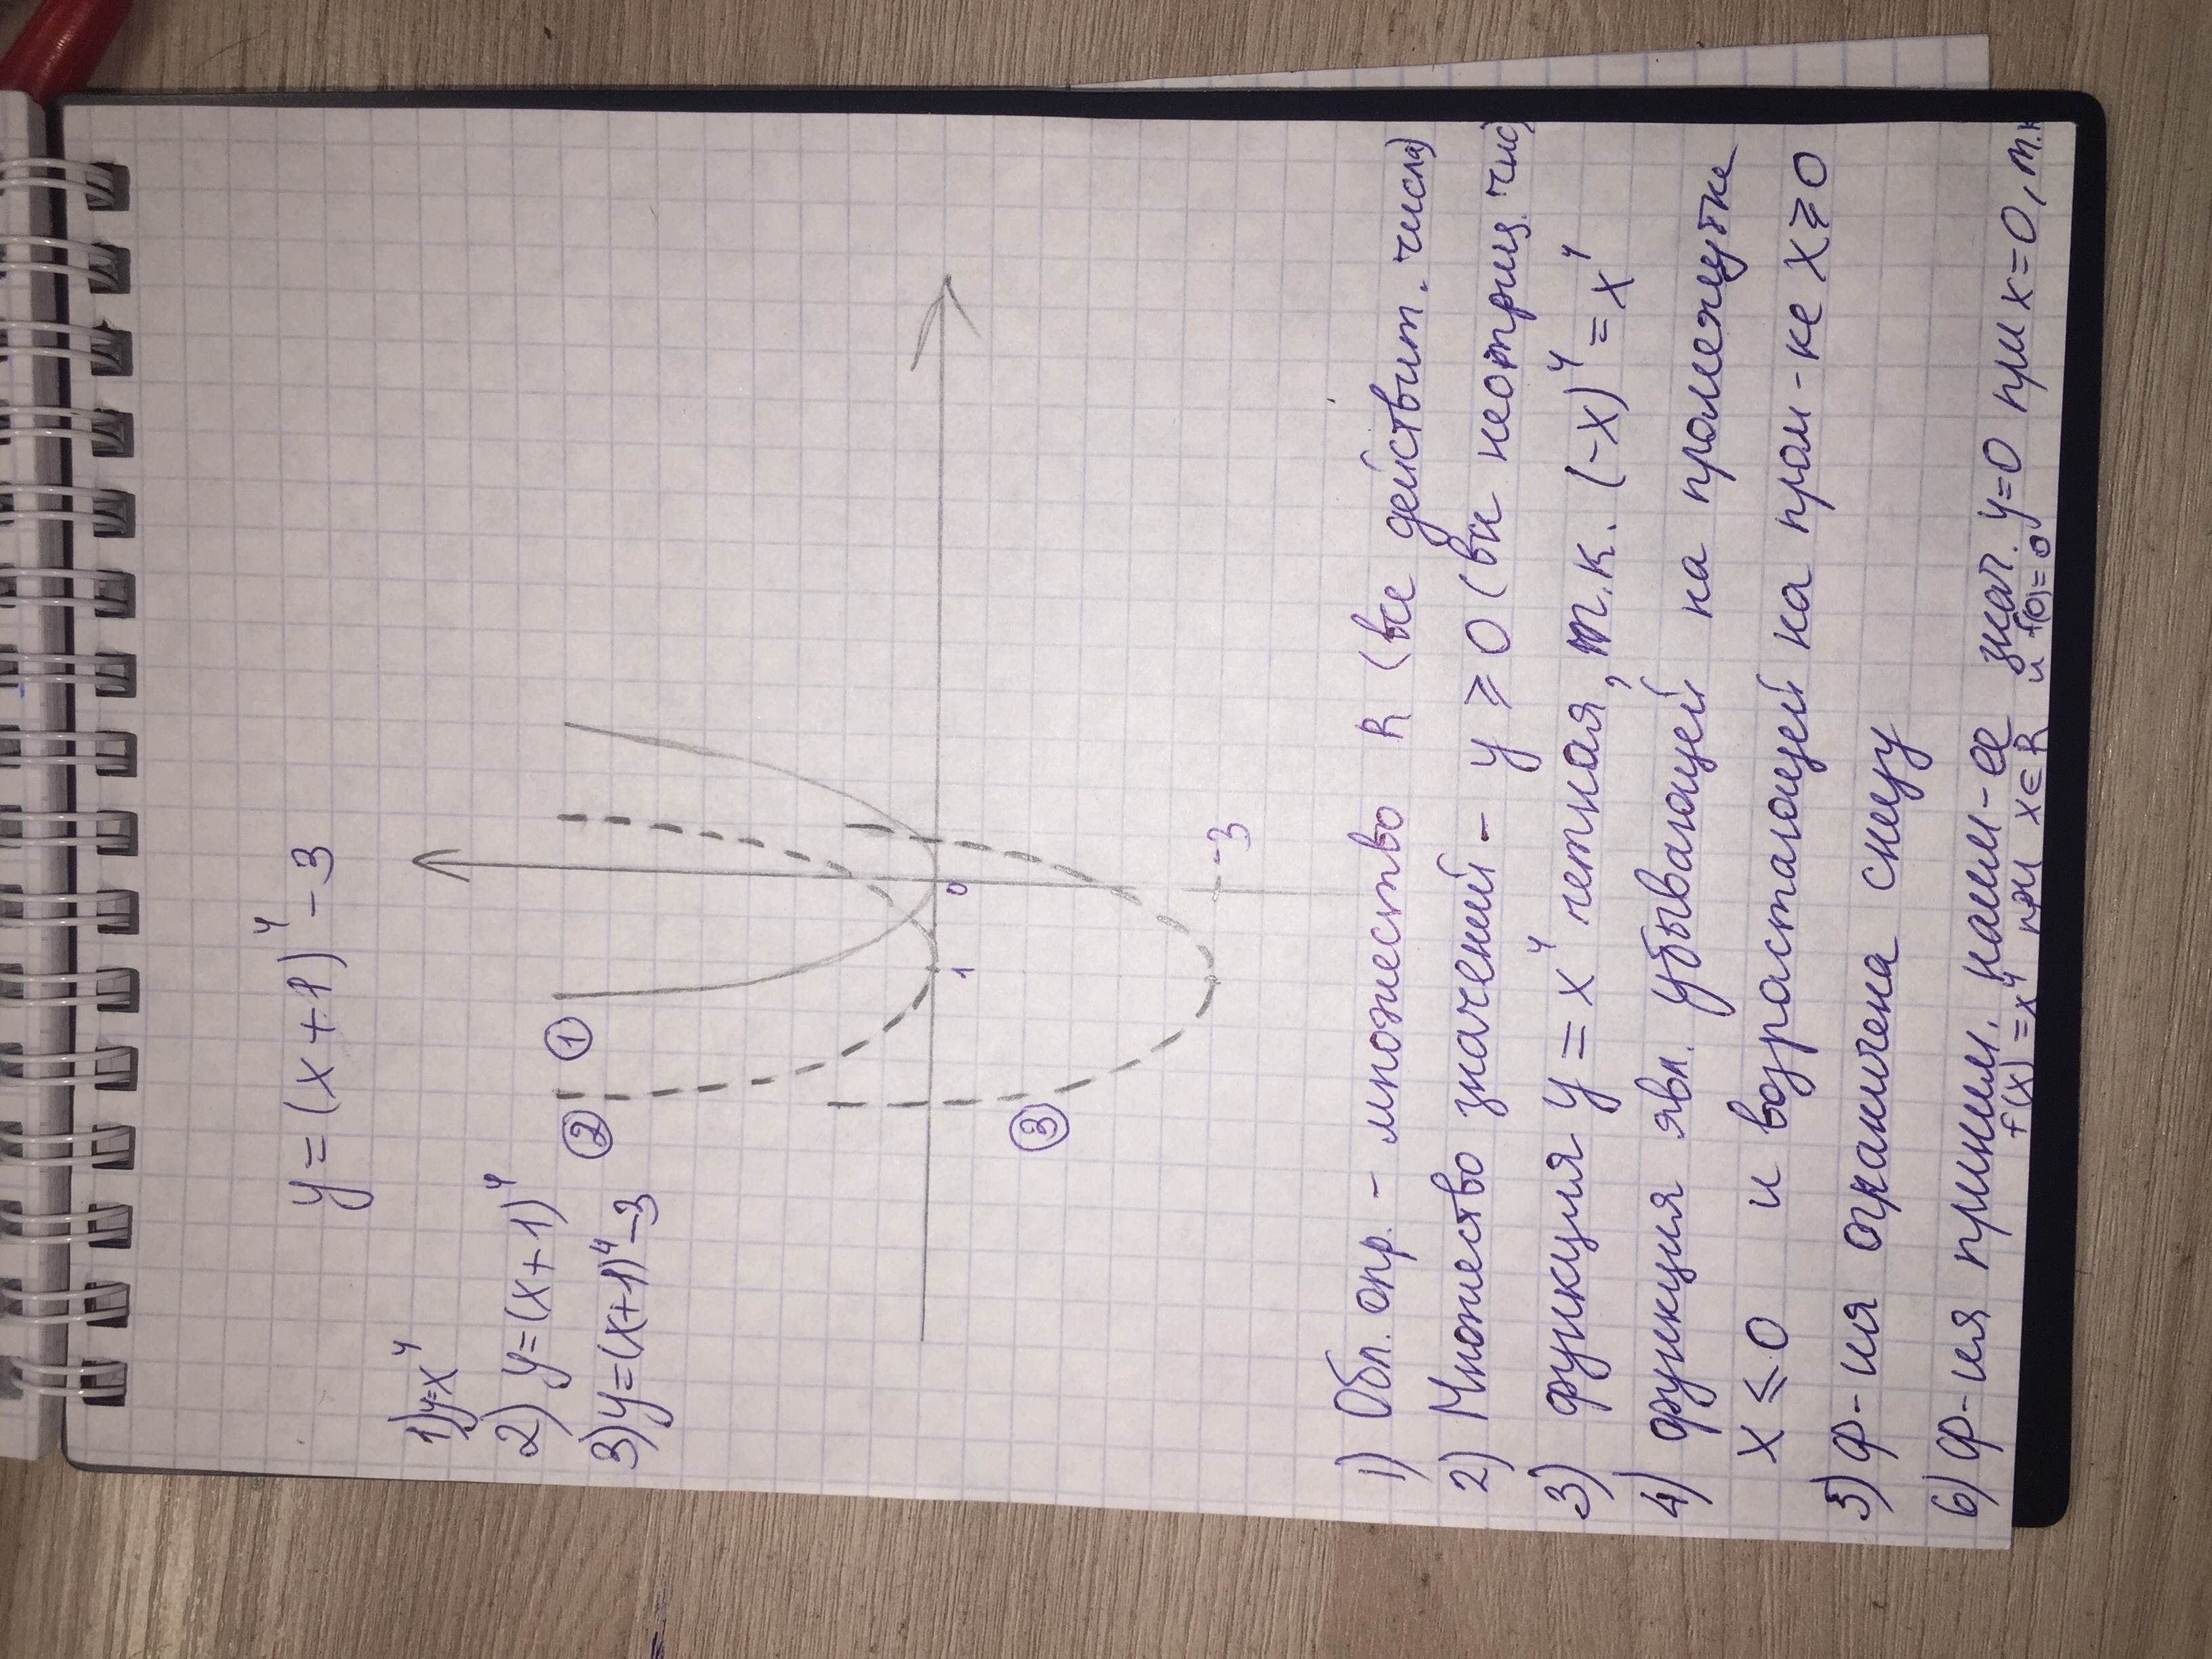 y=(x+1)⁴-3
1) y=x⁴
2) y=(x+1)⁴
3) y=(x+1)⁴-3
①
②
③
1
0
-3
1) Обл. опр. - множество R (все действит. числа)
2) Множество значений - y ⩾ 0 (все неотриц. чис)
3) функция y = x⁴ четная, т.к. (-x)⁴ = x⁴
4) функция явл. убывающей на промежутке
x ⩽ 0 и возрастающей на пром-ке x ⩾ 0
5) ф-ия ограничена снизу
6) ф-ия приним. наим-ее знач. y=0 при x=0, т.к
f(x) = x⁴ при x∈R и f(0)=0